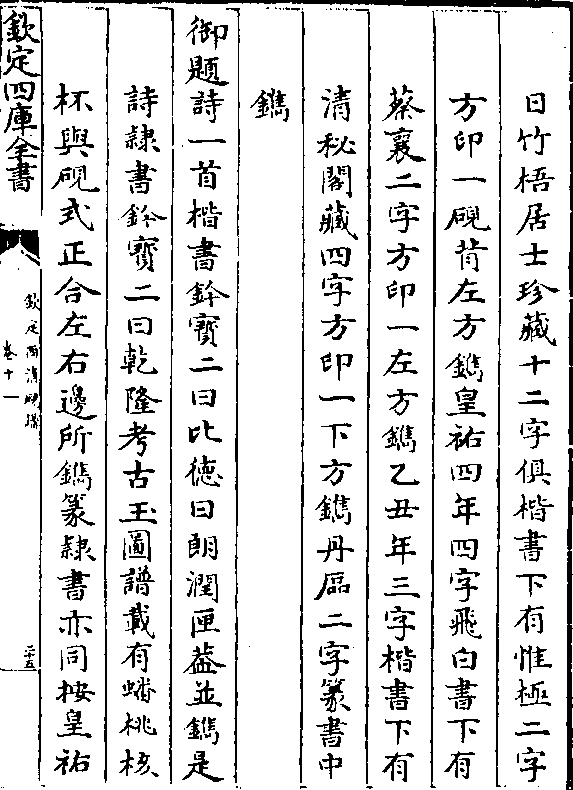 日竹梧居士珍藏十二字俱楷書下有惟極二字
方印一硯背左方鐫皇祐四年四字飛白書下有
蔡襄二字方印一左方鐫乙丑年三字楷書下有
清秘閣藏四字方印一下方鐫丹厓二字篆書中
鐫
御題詩一首楷書鈐寳二曰比德曰朗潤匣葢並鐫是
詩隷書鈐寳二曰乾隆考古玉圖譜載有蟠桃核
杯與硯式正合左右邊所鐫篆隷書亦同按皇祐
欽定四庫全書
欽定西清硯譜
卷十一
二十五